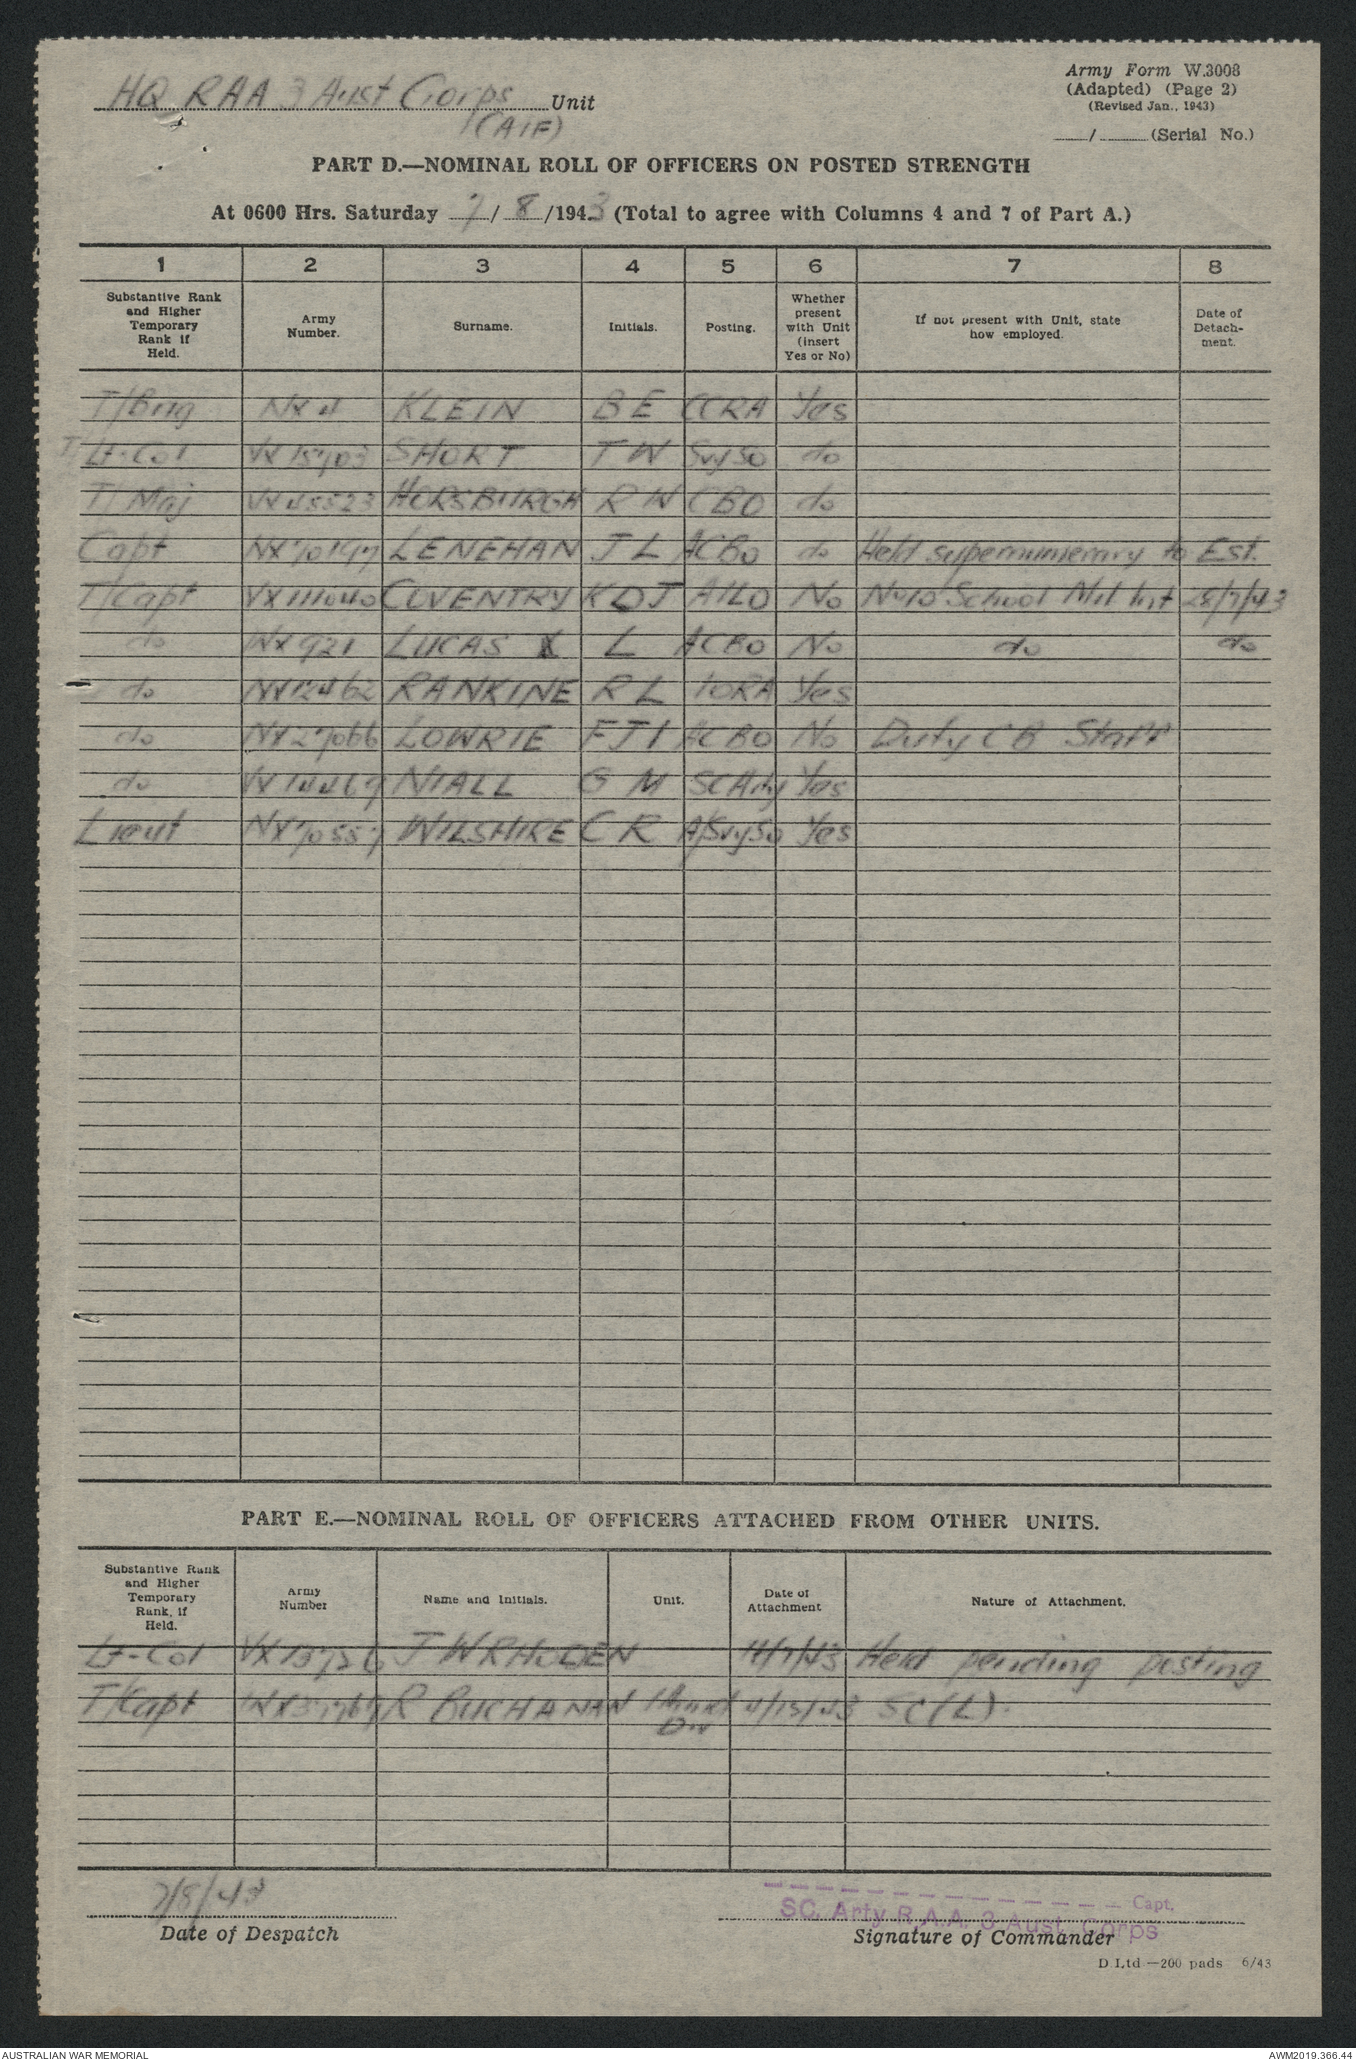 HQ RAA 3 Aust Corps Unit
(AIF)
Army Form W.3008
(Adapted) (Page 2)
(Revised Jan., 1943)
/ (Serial No.)
PART D.—NOMINAL ROLL OF OFFICERS ON POSTED STRENGTH
At 0600 Hrs. Saturday 7/8/1943 (Total to agree with Columns 4 and 7 of Part A.)
1 2 3 4 5 6 7 8
Substantive Rank and Higher Temporary Rank if Held.
Army Number.
Surname.
Initials.
Posting.
Whether present with Unit (insert Yes or No)
If not present with Unit, state how employed.
Date of Detachment.
T/Brig NX4 KLEIN B E CCRA Yes
T/Lt-Col VX15703 SHORT T W SvySO do
T/Maj VX45523 HORSBURGH R N CBO do
Capt NX70197 LENEHAN J L ACBO do Held supernumerary to Est.
T/Capt VX111040 COVENTRY K D J AILO No No 10 School Mil Int 28/7/43
do WX921 LUCAS L ACBO No do do
do NX12462 RANKINE R L IORA Yes
do NX27066 LOWRIE F J I ACBO No Duty CB Staff
do VX14469 NIALL G M SCArty Yes
Lieut NX70557 WILSHIRE C R A/SvySO Yes
PART E.—NOMINAL ROLL OF OFFICERS ATTACHED FROM OTHER UNITS.
Substantive Rank and Higher Temporary Rank, if Held.
Army Number
Name and Initials.
Unit.
Date of Attachment
Nature of Attachment.
Lt-Col VX13726 J W RHODEN 14/7/43 Held pending posting
T/Capt R BUCHANAN Div SC(L).
7/8/43
Date of Despatch
Capt.
SC. Arty R.A.A. 3 Aust. Corps
Signature of Commander
D Ltd—200 pads 6/43
AUSTRALIAN WAR MEMORIAL
AWM2019.366.44